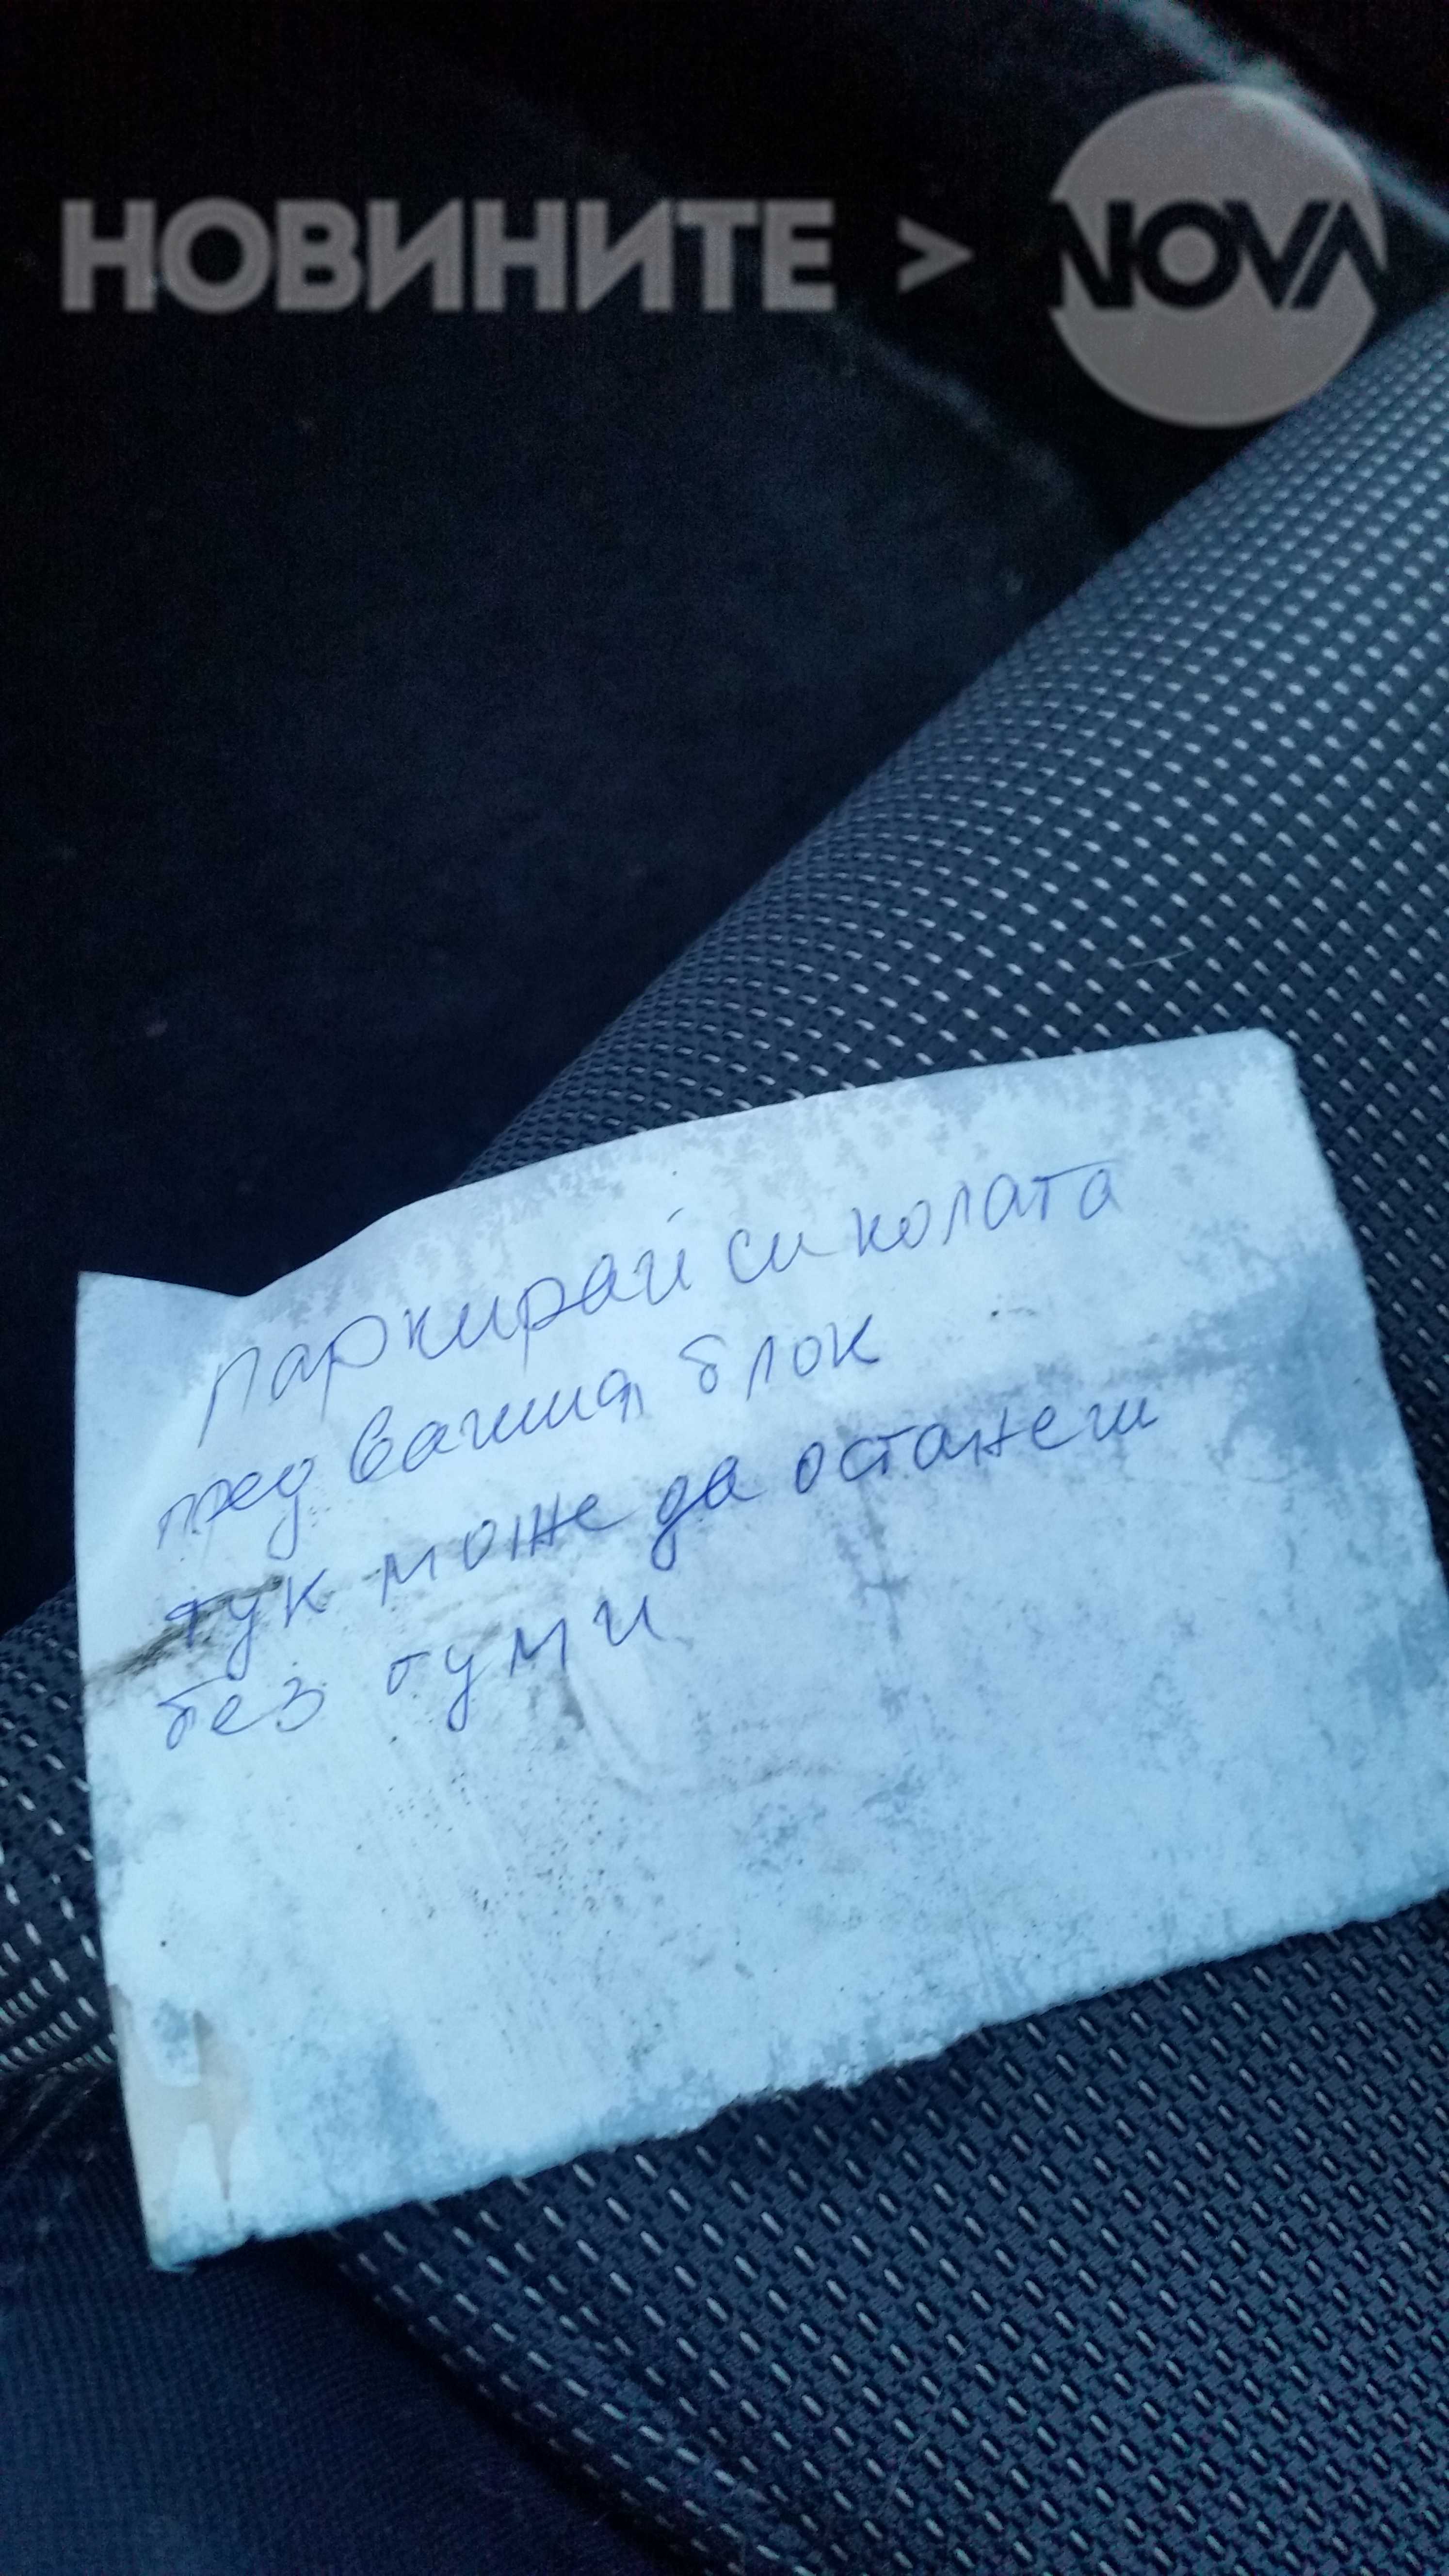 НОВИНИТЕ > NOVA
Паркирай си колата
пред вашия блок
тук може да останеш
без гуми